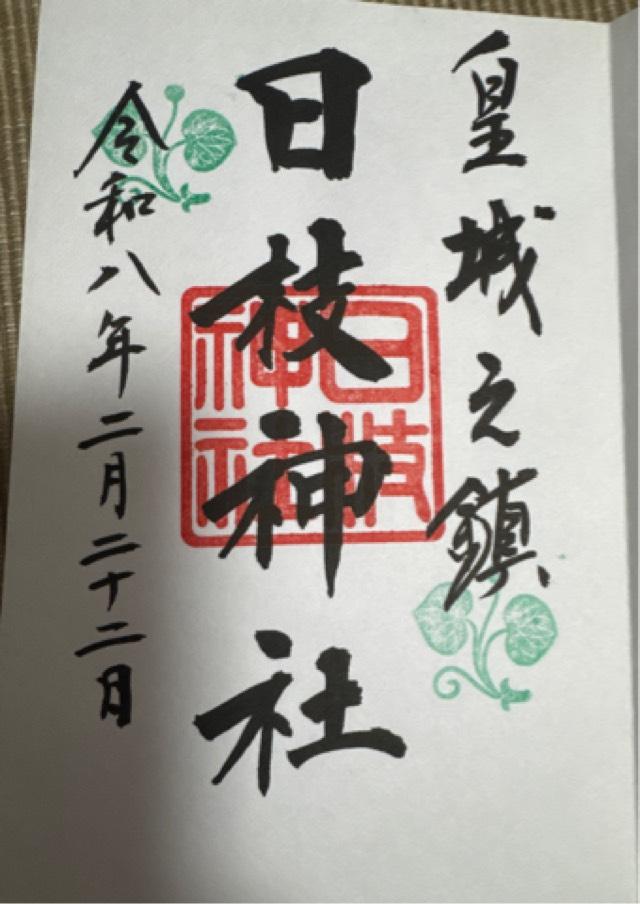 皇城之鎮
日枝神社
日枝神社
令和八年二月二十二日